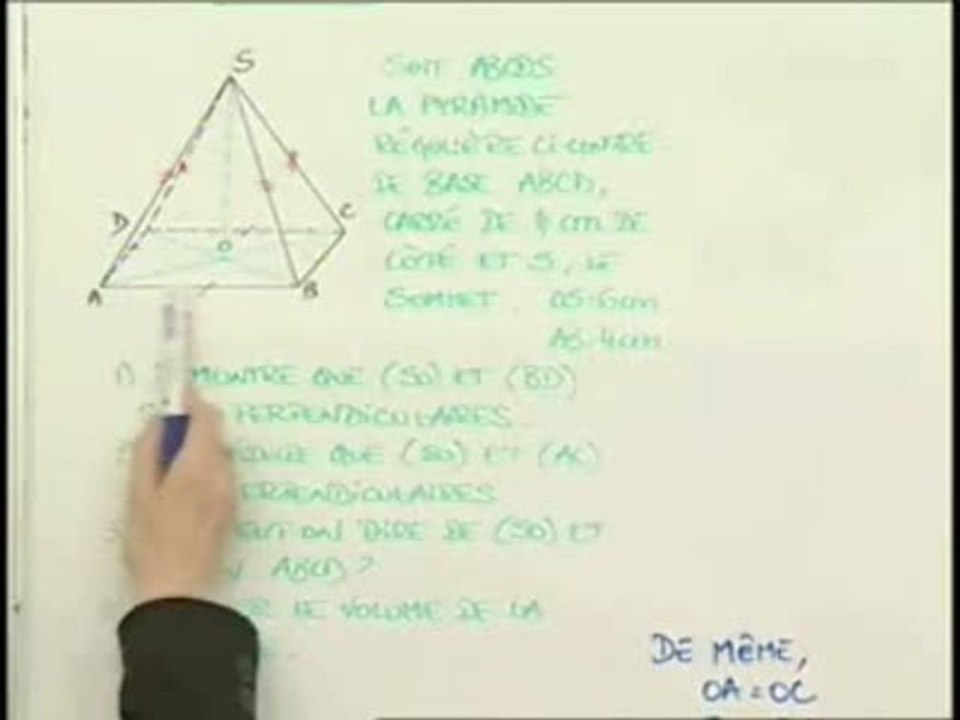 S
SOIT ABCDS
LA PYRAMIDE
RÉGULIÈRE CI-CONTRE
DE BASE ABCD,
D
C
CARRÉ DE 4 cm DE
O
CÔTÉ ET S, LE
A
B
SOMMET. OS=6cm
AB=4cm
1) MONTRE QUE (SO) ET (BD)
PERPENDICULAIRES
QUE (SO) ET (AC)
PERPENDICULAIRES
ON DIRE DE (SO) ET
ABCD ?
LE VOLUME DE LA
DE MÊME,
OA = OC